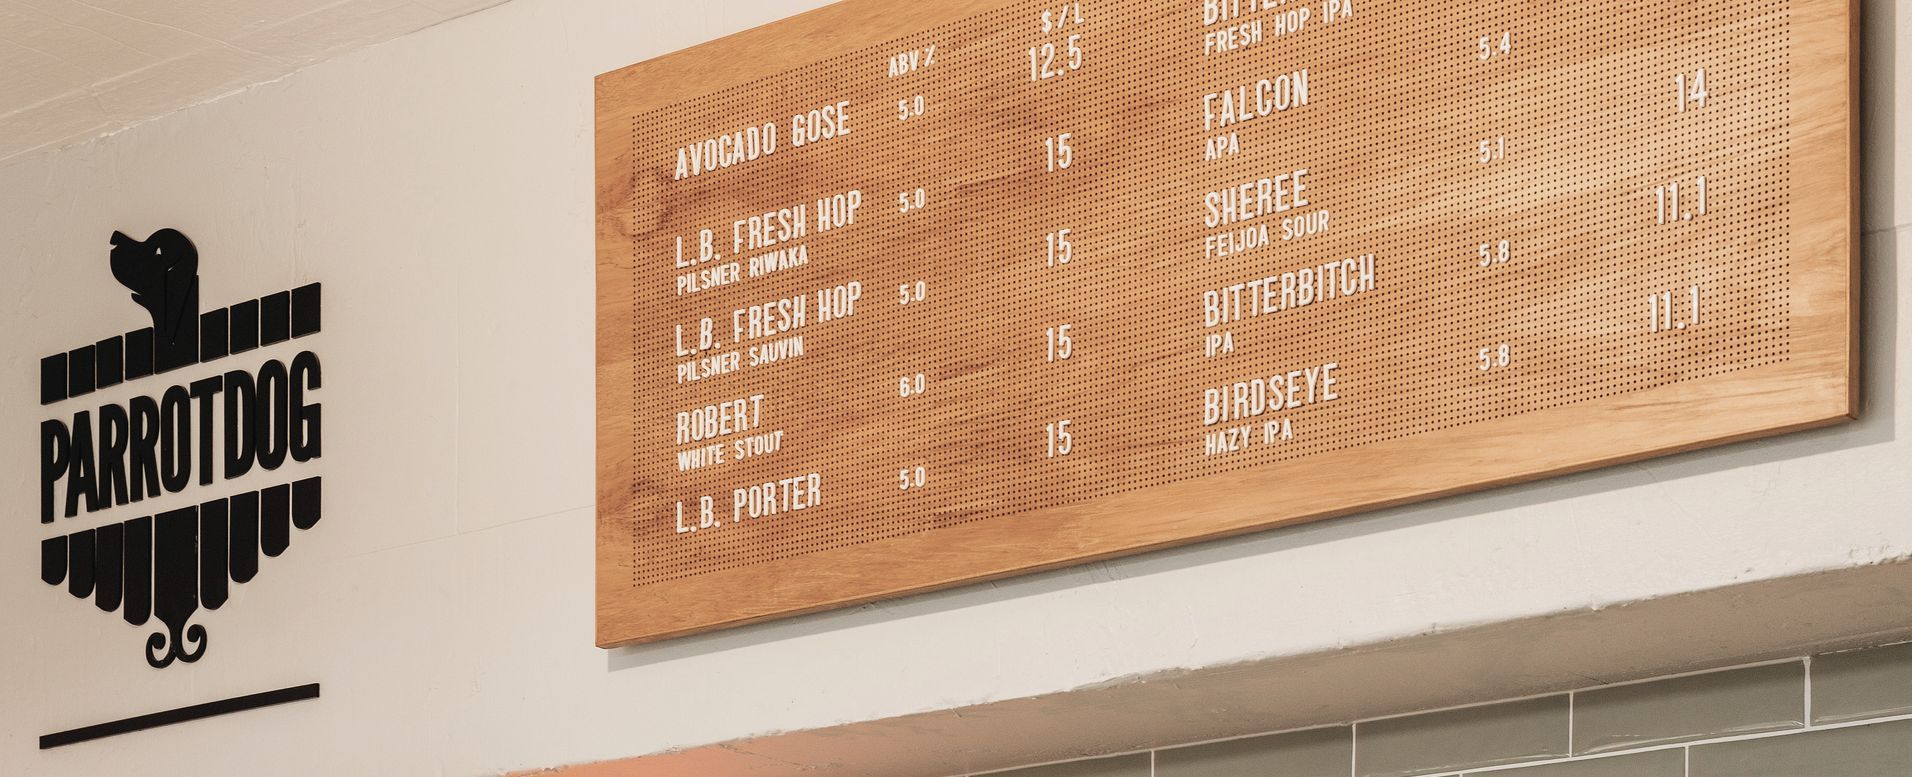 ABV % $/L
AVOCADO GOSE 5.0 12.5
L.B. FRESH HOP 5.0 15
PILSNER RIWAKA
L.B. FRESH HOP 5.0 15
PILSNER SAUVIN
ROBERT 6.0 15
WHITE STOUT
L.B. PORTER 5.0 15
FRESH HOP IPA
FALCON 5.4
APA
SHEREE 5.1 14
FEIJOA SOUR
BITTERBITCH 5.8 11.1
IPA
BIRDSEYE 5.8 11.1
HAZY IPA
PARROTDOG